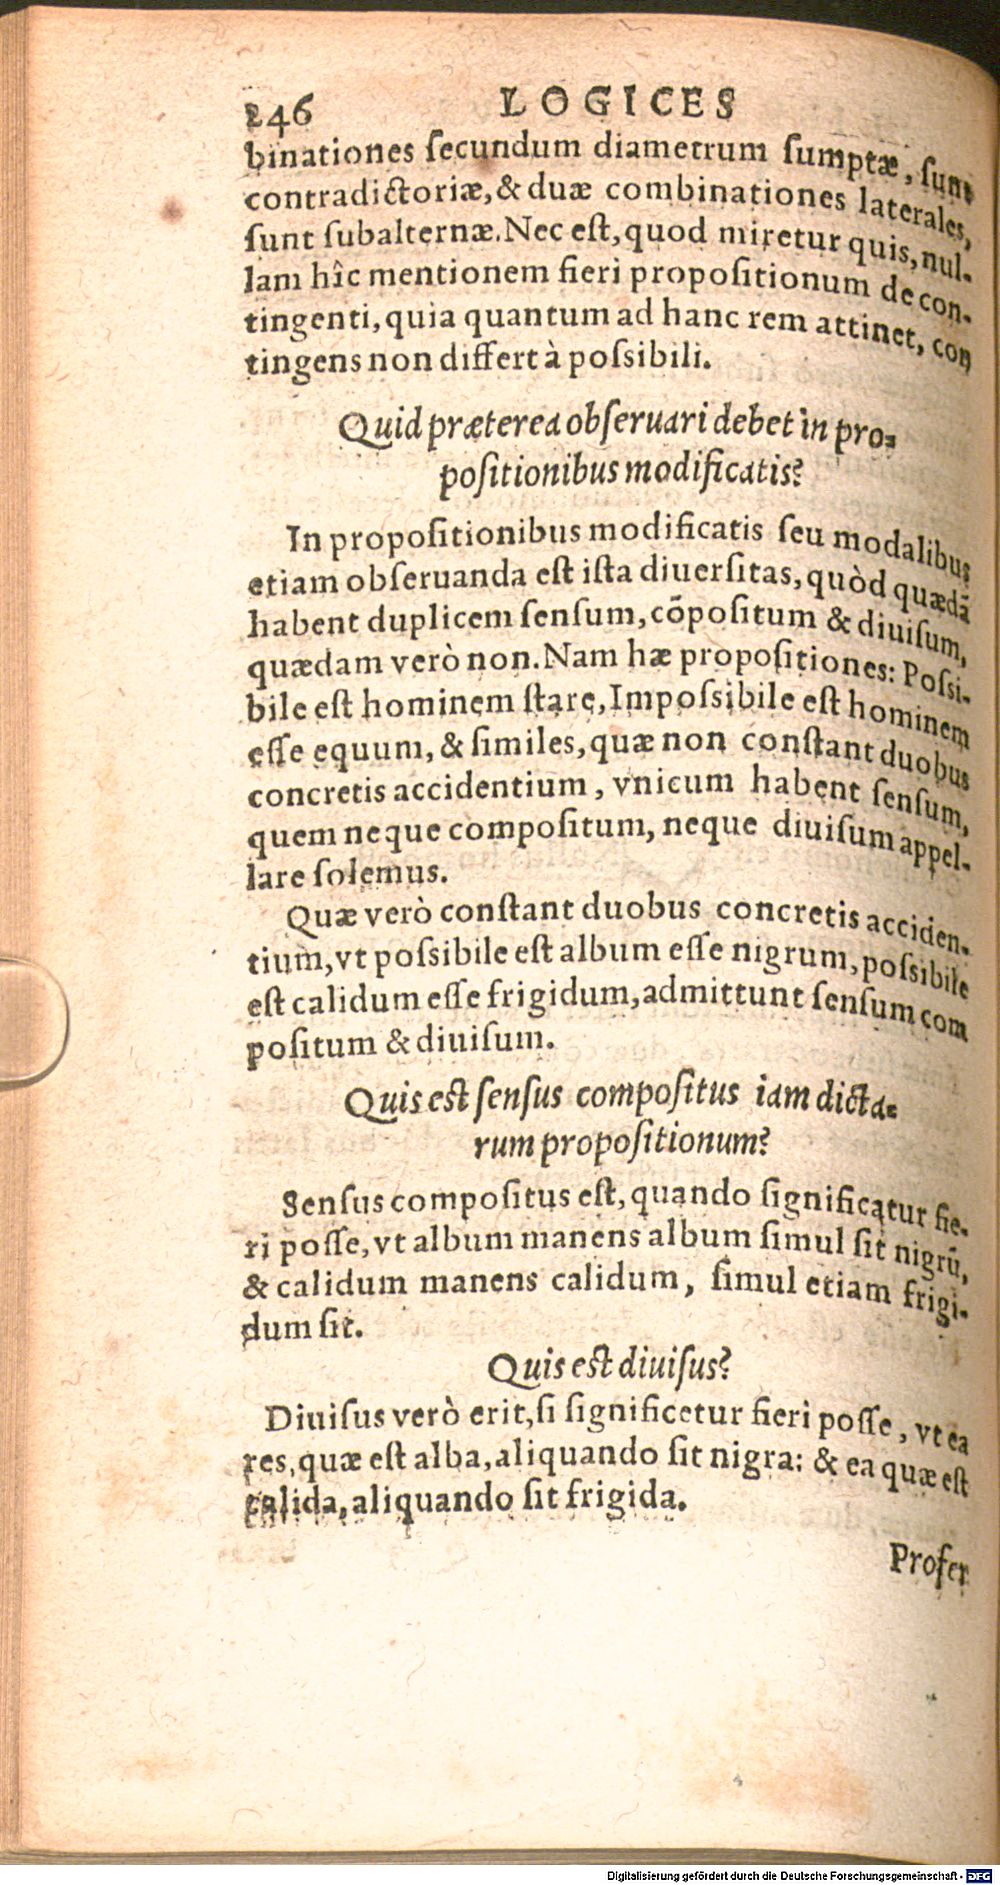 246 LOGICES
binationes ſecundum diametrum ſumptæ, ſunt
contradictoriæ, & duæ combinationes laterales,
ſunt ſubalternæ. Nec eſt, quod miretur quis, nul-
lam hîc mentionem fieri propoſitionum de con-
tingenti, quia quantum ad hanc rem attinet, con
tingens non differt à poſsibili.
Quid præterea obſeruari debet in pro-
poſitionibus modificatis?
In propoſitionibus modificatis ſeu modalibus
etiam obſeruanda eſt iſta diuerſitas, quòd quædã
habent duplicem ſenſum, cõpoſitum & diuiſum,
quædam verò non. Nam hæ propoſitiones: Poſsi-
bile eſt hominem ſtare, Impoſsibile eſt hominem
eſſe equum, & ſimiles, quæ non conſtant duobus
concretis accidentium, vnicum habent ſenſum,
quem neque compoſitum, neque diuiſum appel-
lare ſolemus.
Quæ verò conſtant duobus concretis acciden-
tium, vt poſsibile eſt album eſſe nigrum, poſsibile
eſt calidum eſſe frigidum, admittunt ſenſum com
poſitum & diuiſum.
Quis eſt ſenſus compoſitus iam dicta-
rum propoſitionum?
Senſus compoſitus eſt, quando ſignificatur fie-
ri poſſe, vt album manens album ſimul ſit nigrũ,
& calidum manens calidum, ſimul etiam frigi-
dum ſit.
Quis eſt diuiſus?
Diuiſus verò erit, ſi ſignificetur fieri poſſe, vt ea
res, quæ eſt alba, aliquando ſit nigra: & ea quæ eſt
calida, aliquando ſit frigida.
Profer
Digitalisierung gefördert durch die Deutsche Forschungsgemeinschaft - DFG